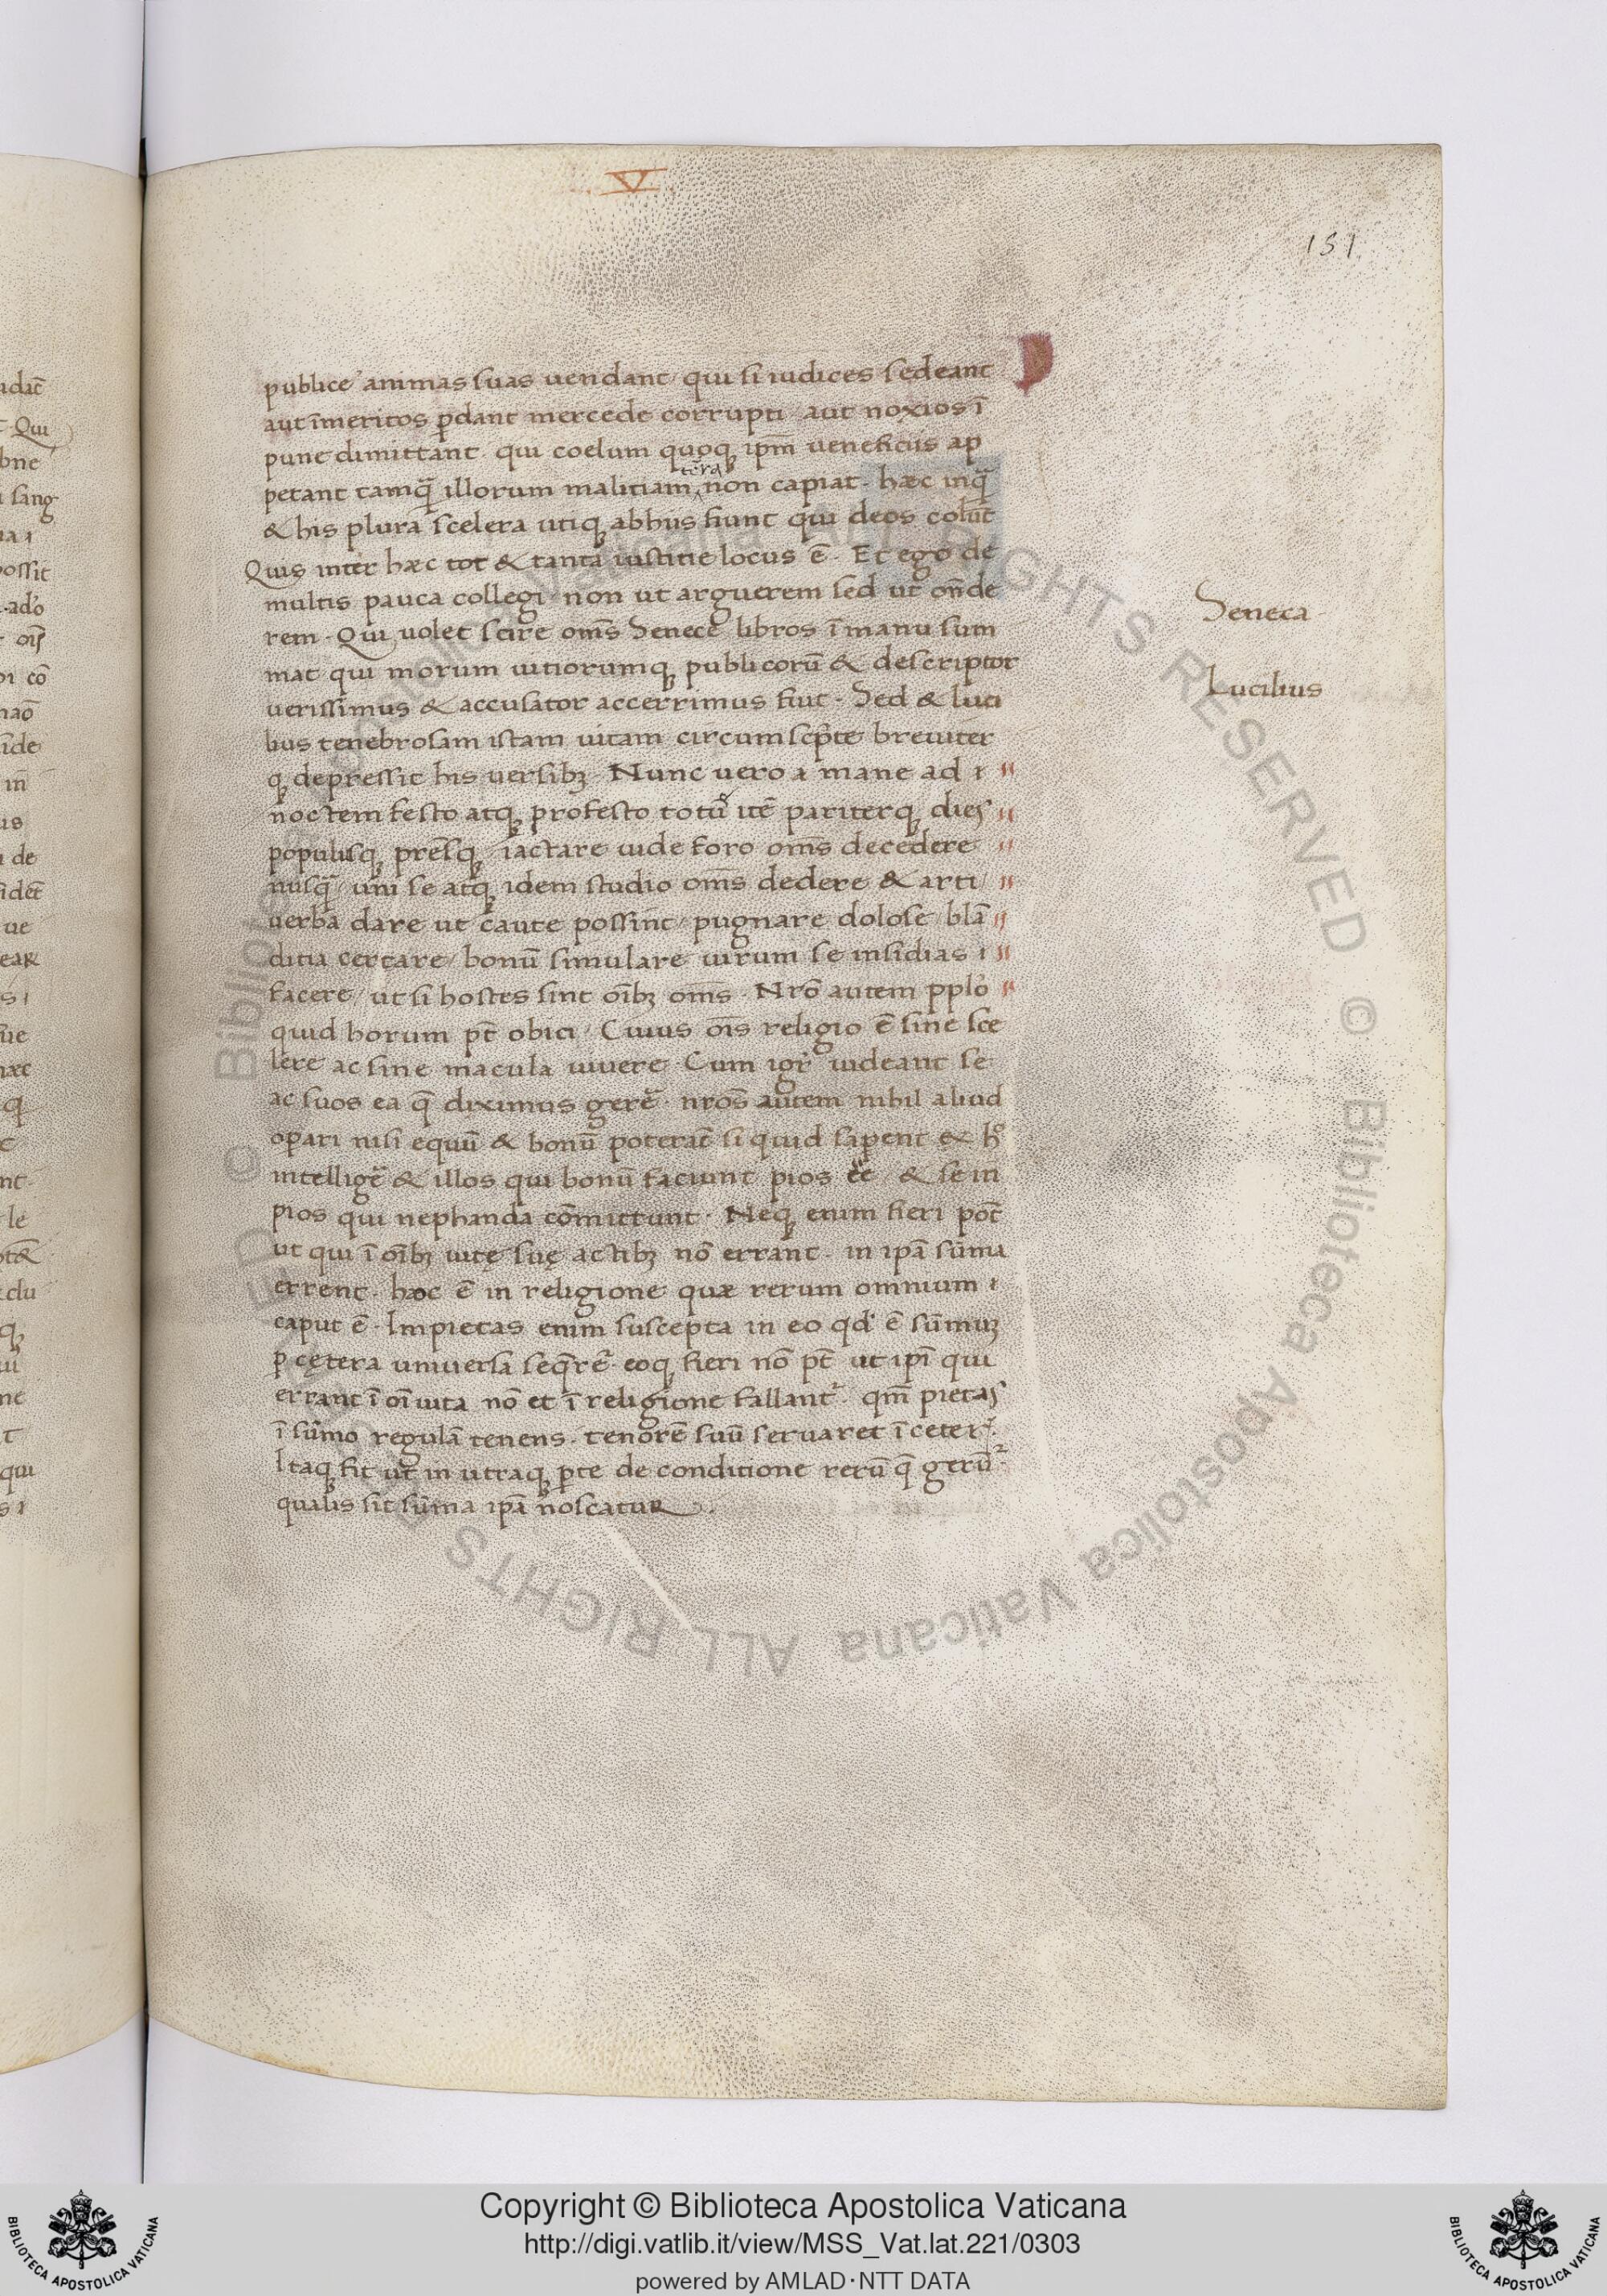 V
151
publice animas suas uendant qui si iudices sedeant
aut īmeritos ꝑdant mercede corrupti aut noxios ī
pune dimittant. qui coelum quoqꝫ ip̄m ueneficiis ap
petant tamq̄ illorum malitiam non capiat. hæc inq̄
& his plura scelera utiqꝫ abhiis fiunt qui deos colūt
Quis inter hæc tot & tanta iustitie locus ē. Et ego de
multis pauca collegi non ut arguerem sed ut on̄de
rem. Qui uolet scire om̄s Senece libros ī manu sum
Seneca
mat qui morum uitiorumqꝫ publicorū & descriptor
Lucilius
uerissimus & accusator accerrimus fuit. Sed & luci
lius tenebrosam istam uitam circumscp̄te breuiter
qꝫ depressit his uersibꝫ. Nunc uero a mane ad
noctem festo atqꝫ profesto totū itē pariterqꝫ dies
populusqꝫ pres̄qꝫ iactare iude foro om̄s decedere
nusq̄ / uni se atqꝫ idem studio om̄s dedere & arti /
uerba dare ut caute possint / pugnare dolose / blā
ditia certare / bonū simulare uirum se insidias
facere / ut si hostes sint oībꝫ om̄s. Nr̄o autem pplo
quid horum pt̄ obici / Cuius oīs religio ē sine sce
lere ac sine macula uiuere. Cum igr̄ uideant se
ac suos ea q̄ diximus gerē. nr̄os autem nihil aliud
opari nisi equū & bonū poterāt si quid saperent & h°
intelligē & illos qui bonū faciunt pios eē & se in
pios qui nephanda cōmittunt. Neqꝫ enim fieri pōt
ut qui ī oībꝫ uite suę actibꝫ nō errant. in ipā sūma
errent. hoc ē in religione quæ rerum omnium
caput ē. Impietas enim suscepta in eo qd̓ ē sūmuꝫ
ꝑ cętera uniuersa seq̄rē. eoqꝫ fieri nō pt̄ ut ipī qui
errant ī oī uita nō et ī religione fallant̄. qm̄ pietas
ī sūmo regulā tenens. tenorē suū seruaret ī ceter̄.
Itaqꝫ fit ut in utraqꝫ ꝑte de conditione rerū q̄ gerū.
qualis sit sūma ipā noscatur.
Copyright © Biblioteca Apostolica Vaticana
http://digi.vatlib.it/view/MSS_Vat.lat.221/0303
powered by AMLAD·NTT DATA